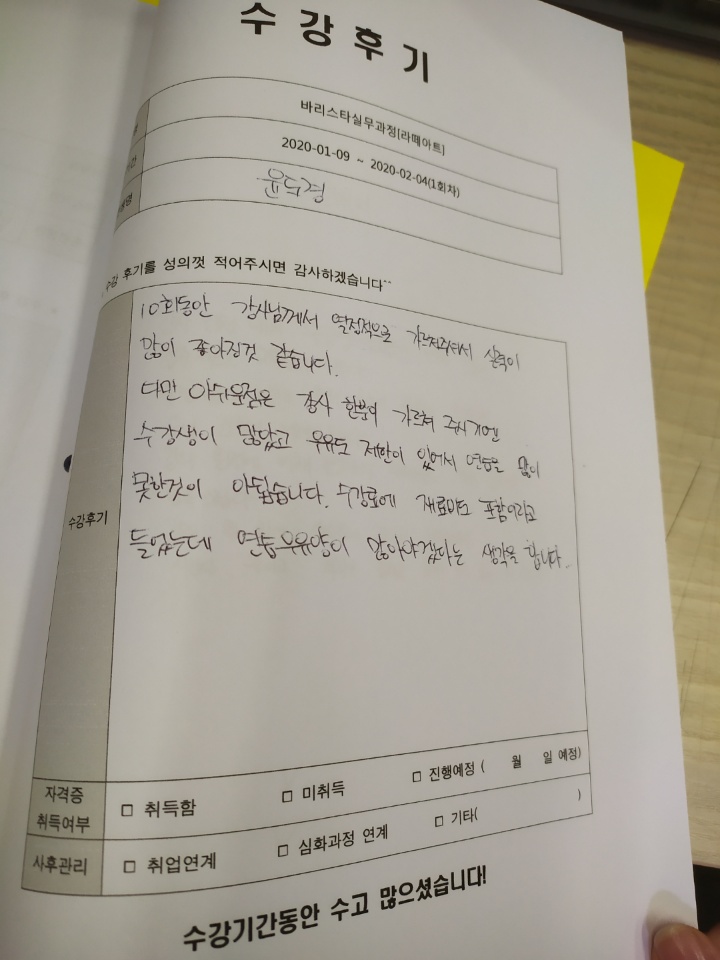 수 강 후 기
바리스타실무과정[라떼아트]
2020-01-09 ~ 2020-02-04(1회차)
수강 후기를 성의껏 적어주시면 감사하겠습니다~~
10회동안 강사님께서 열정적으로 가르쳐주셔서 실력이
많이 좋아진것 같습니다.
다만 아쉬운점은 강사 한분이 가르쳐 주시기엔
수강생이 많았고 우유도 제한이 있어서 연습을 많이
못한것이 아쉽습니다. 수강료에 재료비도 포함이라고
들었는데 연습우유양이 많아야겠다는 생각을 합니다..
수강후기
자격증
취득여부
□ 취득함 □ 미취득 □ 진행예정 ( 월 일 예정)
사후관리 □ 취업연계 □ 심화과정 연계 □ 기타( )
수강기간동안 수고 많으셨습니다!